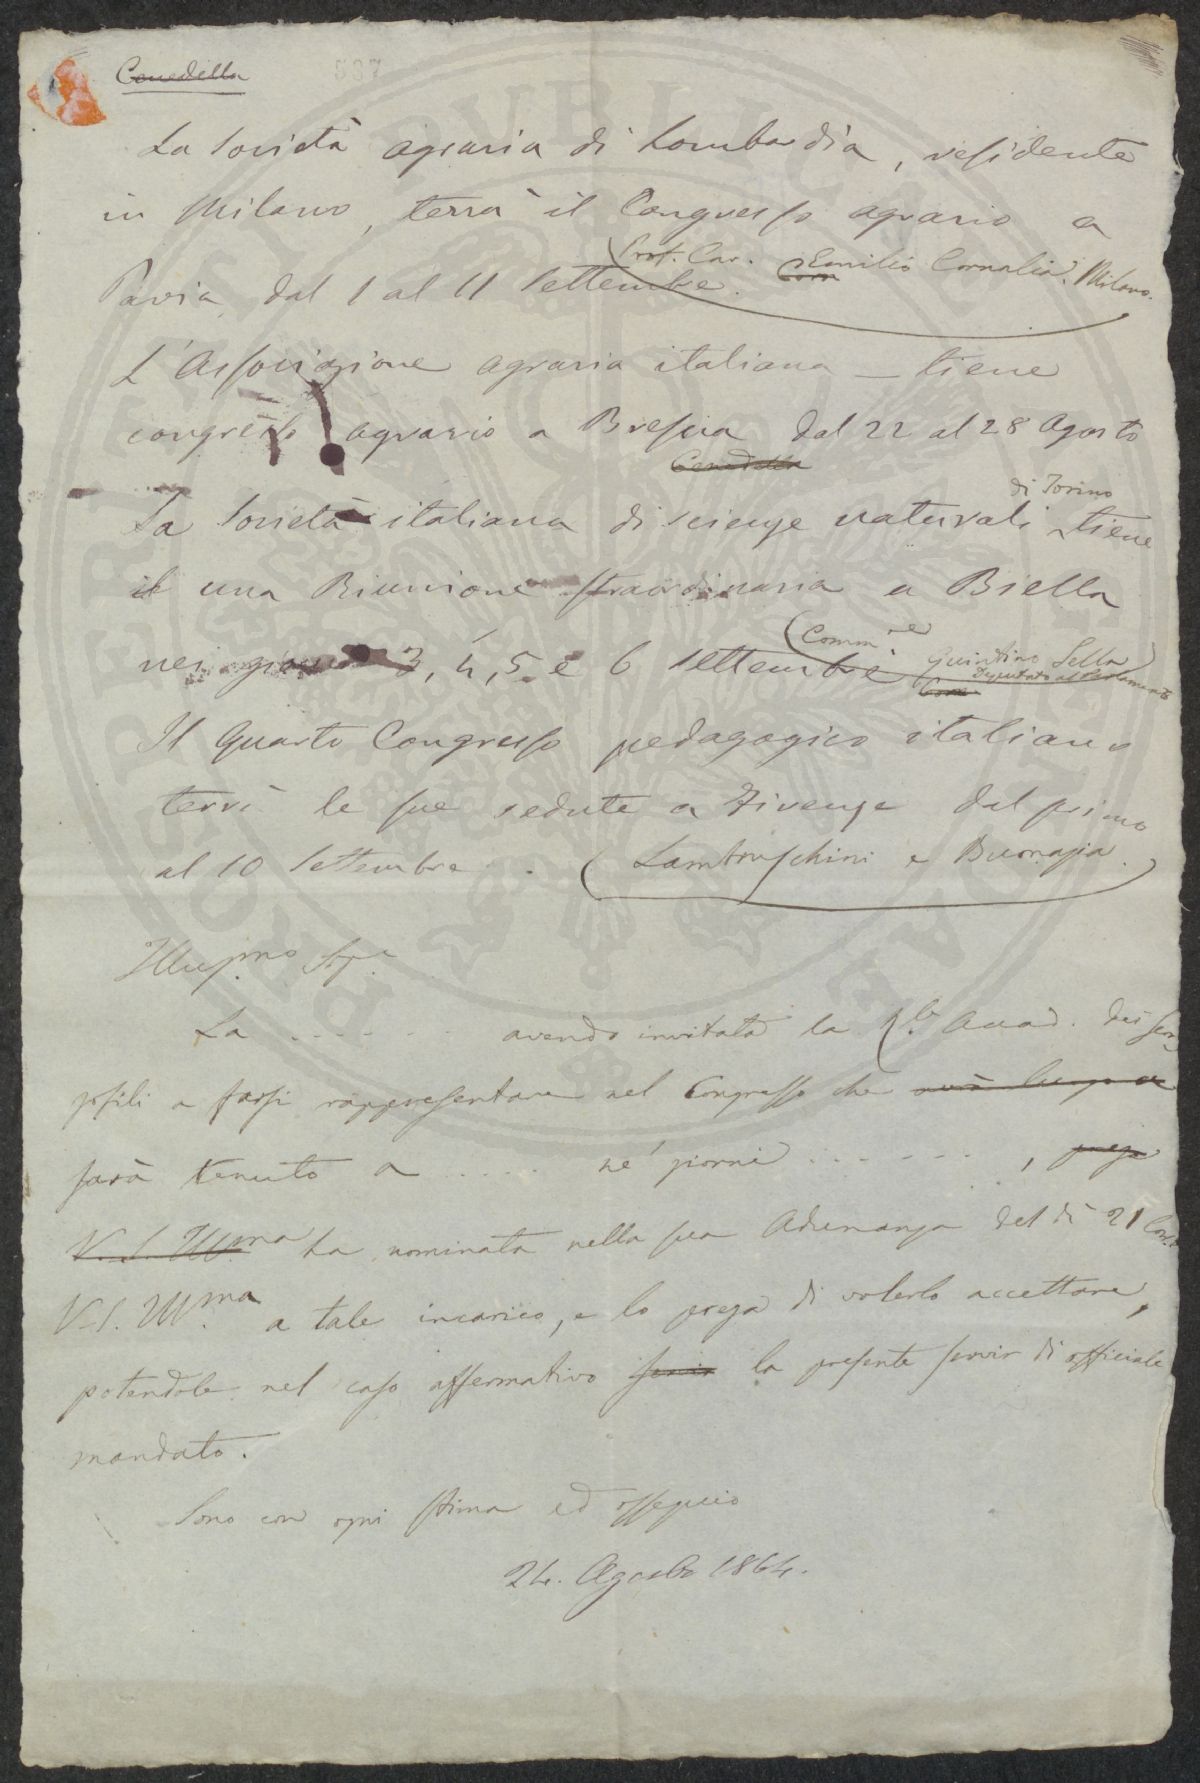 Cenedella
587
La Società agraria di Lombardia, residente
in Milano, terrà il Congresso agrario a
(Prof. Cav. Emilio Cornalia. Milano.
Pavia dal 1 al 11 Settembre.
L'Associazione agraria italiana – tiene
congresso agrario a Brescia dal 22 al 28 Agosto
Cenedella
di Torino
La Società italiana di scienze naturali tiene
il una Riunione straordinaria a Biella
(Comm.re Quintino Sella)
Deputato al Parlamento
nei giorni 3, 4, 5 e 6 Settembre
Il Quarto Congresso pedagogico italiano
terrà le sue sedute a Firenze dal primo
al 10 Settembre. (Lambruschini e Buonazia.)
Illus.mo Sig.e
La . . . . . . avendo invitata la R.le Accad. dei
posili a farsi rappresentare nel Congresso che avrà luogo a
sarà tenuto a . . . . ne' giorni . . . . . . . , prega
V. S. Ill.ma ha nominata nella sua Adunanza del dì 21
V. S. Ill.ma a tale incarico, e lo prega di volerlo accettare,
potendole nel caso affermativo servir la presente servir di officiale
mandato.
Sono con ogni stima ed ossequio
24. Agosto 1864.